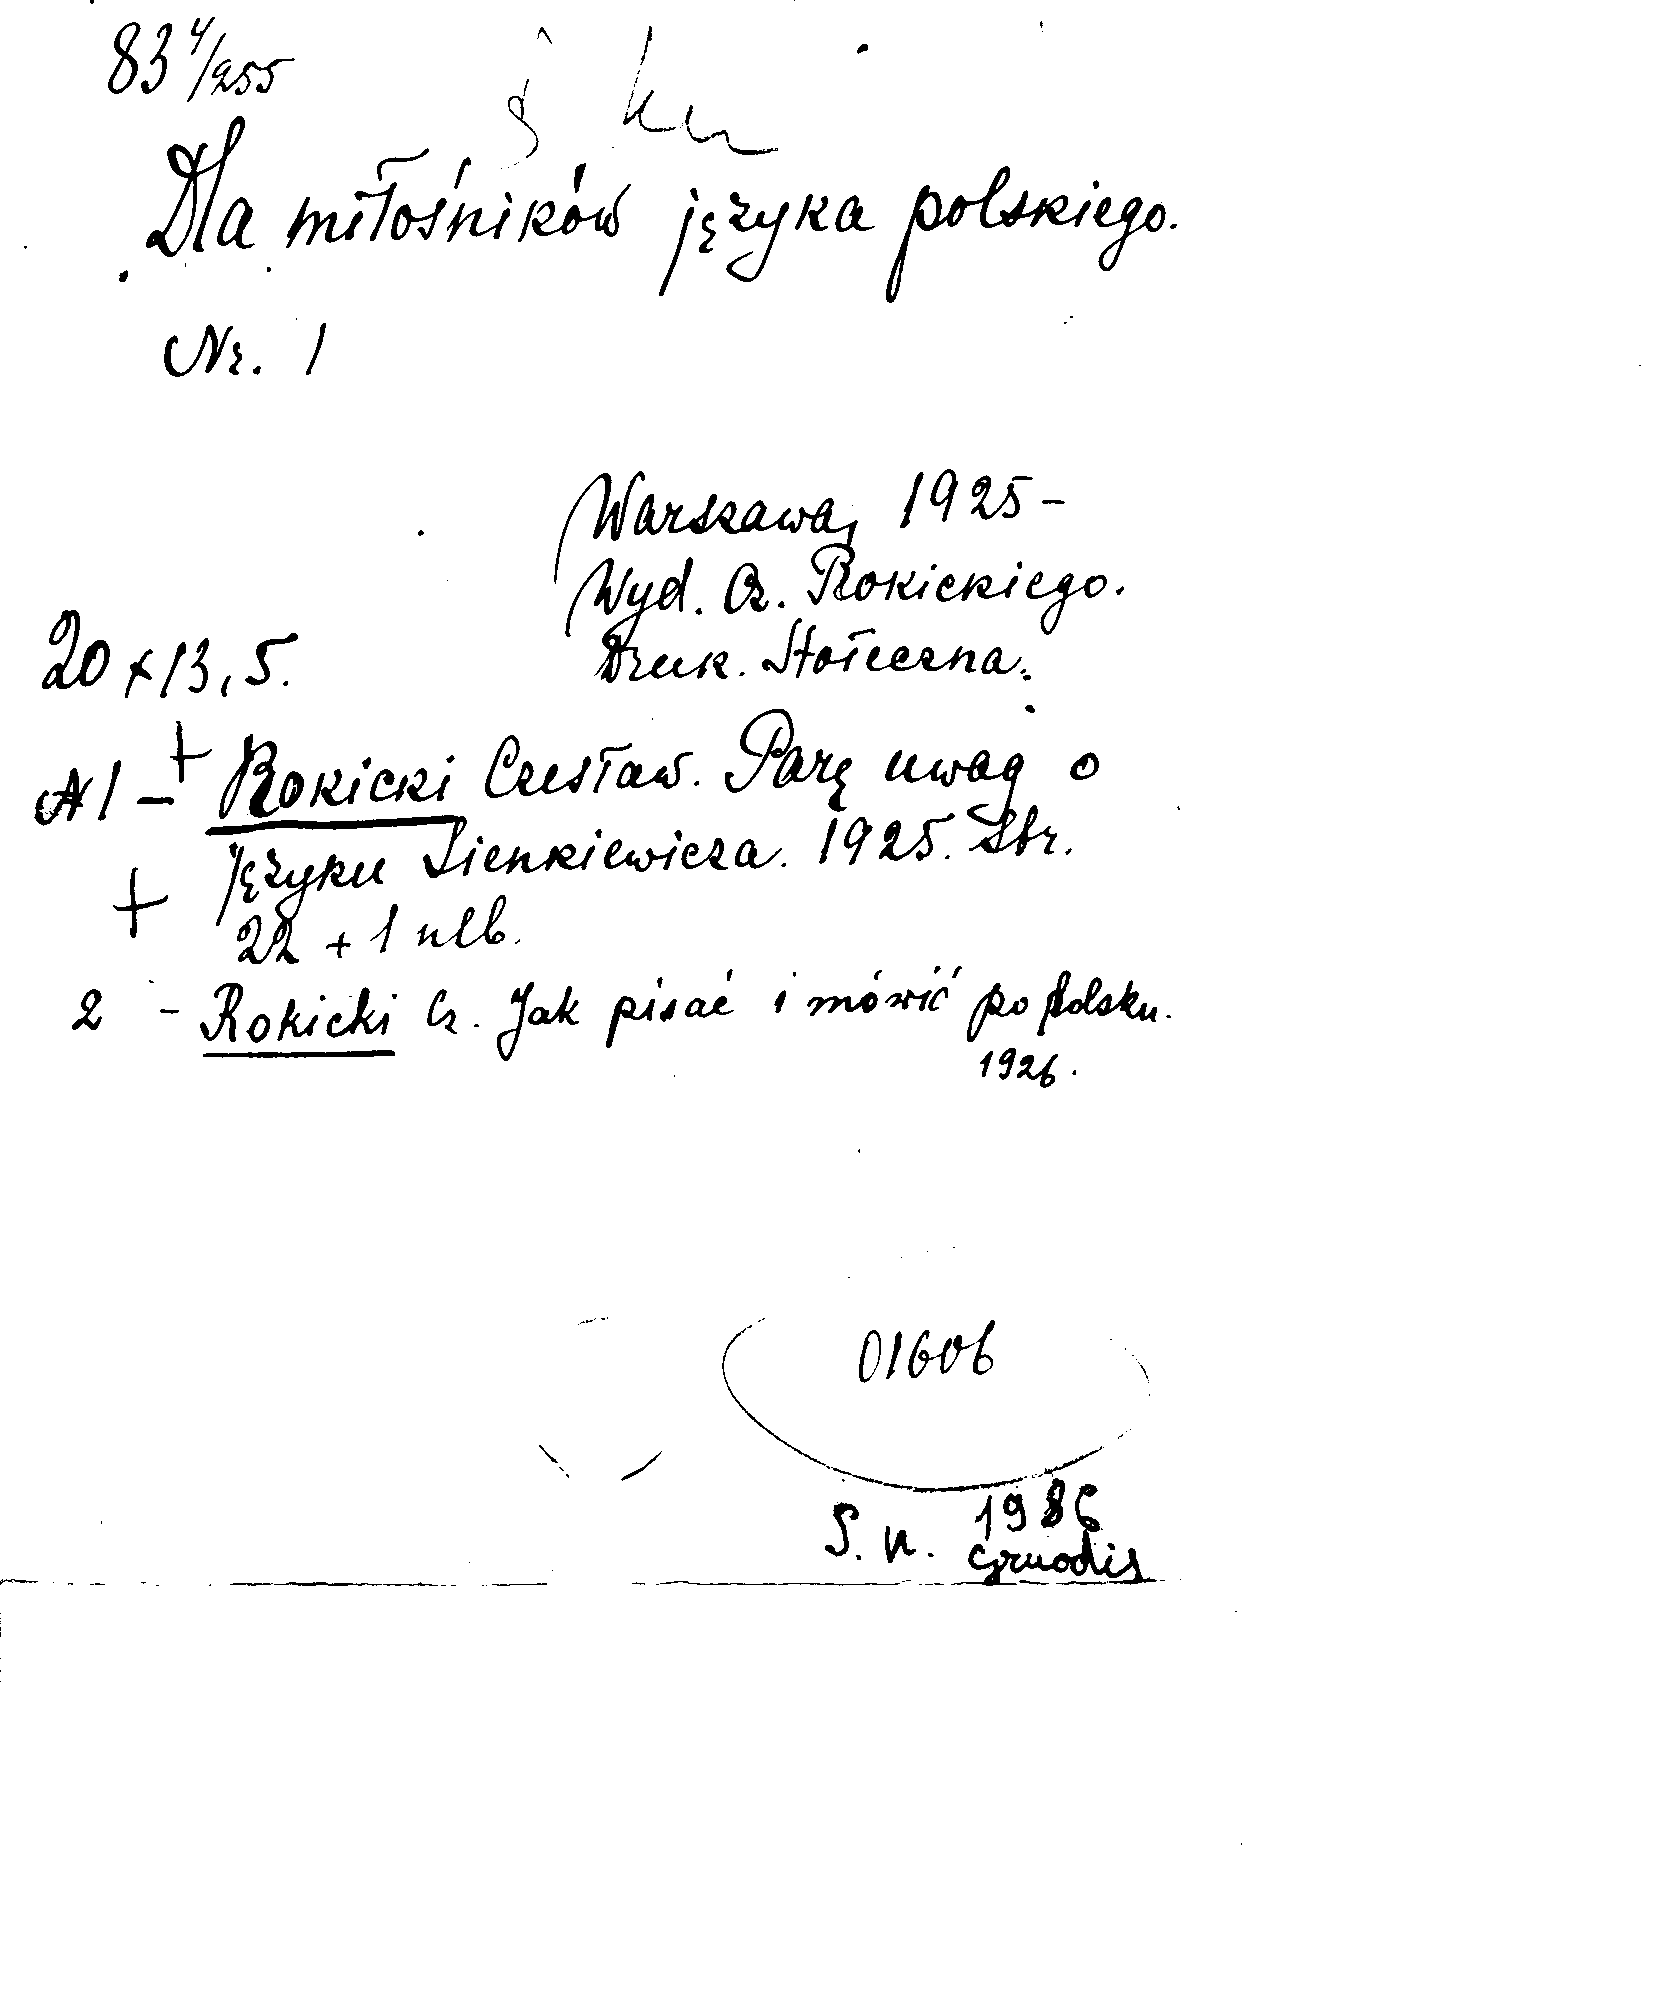 83⁴/255
Dla miłośników języka polskiego.
Nr. 1
Warszawa, 1925 -
Wyd. Cz. Rokickiego.
20 x 13,5.
Druk. Stołeczna.
N 1 - Rokicki Czesław. Parę uwag o
języku Sienkiewicza. 1925. Str.
22 + 1 nlb.
2 - Rokicki Cz. Jak pisać i mówić po polsku.
1926.
01606
S. n. 1986
gruodis